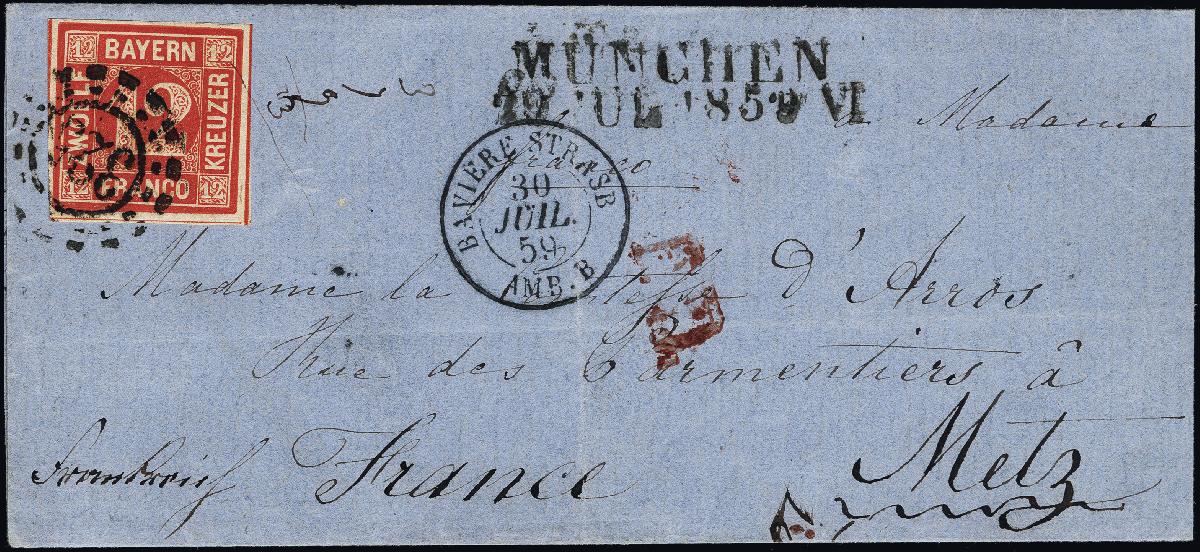 12 BAYERN 12
ZWÖLF
12
KREUZER
12 FRANCO 12
MÜNCHEN
29 JUL 1859 VI
à Madame
franco
BAVIERE STRASB
30
JUIL.
59
AMB. B
P.D.
Madame la d'Arros
Rue des Parmentiers à
Metz
Frankreich France